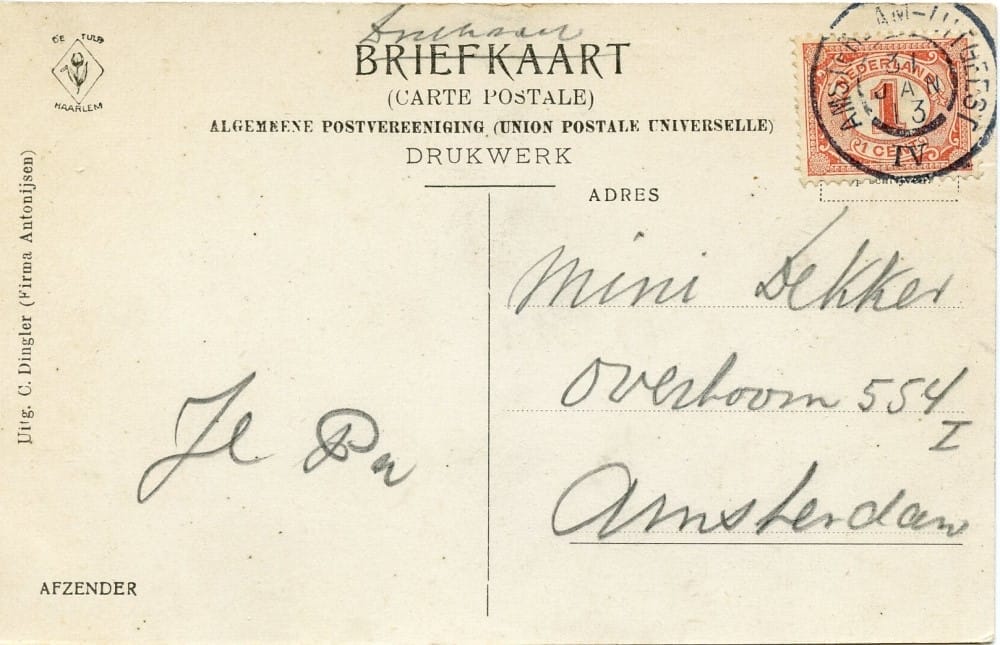 DE TULP
HAARLEM
Drukwerk
BRIEFKAART
(CARTE POSTALE)
ALGEMEENE POSTVEREENIGING (UNION POSTALE UNIVERSELLE)
DRUKWERK
NEDERLAND
1
1 CENT
31
JAN
13
IV
ADRES
Mini Dekker
Overtoom 554
I
Amsterdam
Je Pa
AFZENDER
Uitg. C. Dingler (Firma Antonijsen)